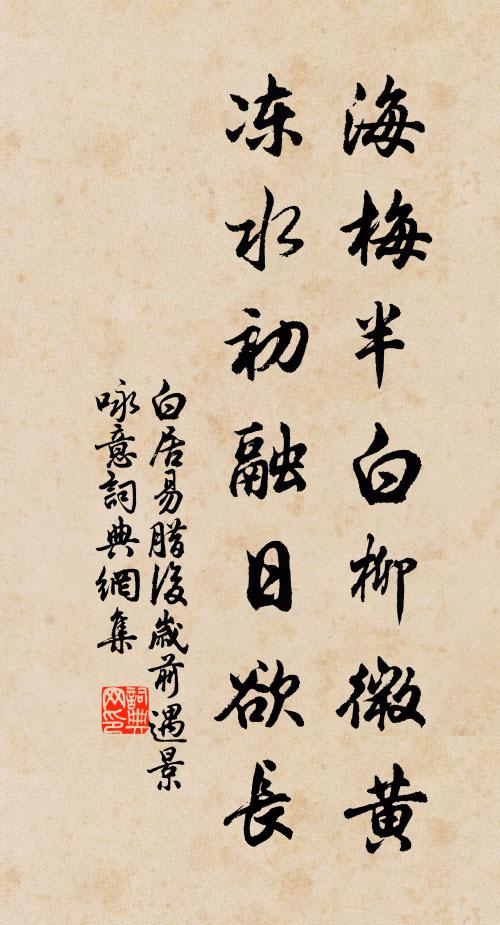 海梅半白柳微黄
冻水初融日欲長
白居易腊後歲前遇景
咏意詞典網集
詞典
网印